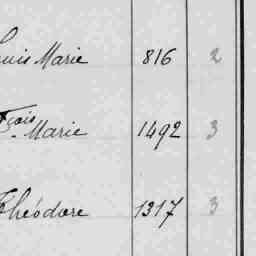 ouis Marie 816 2
çois
- Marie 1492 3
Théodore 1317 3